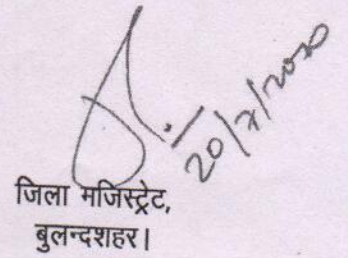 20/7/2020
जिला मजिस्ट्रेट,
बुलन्दशहर।